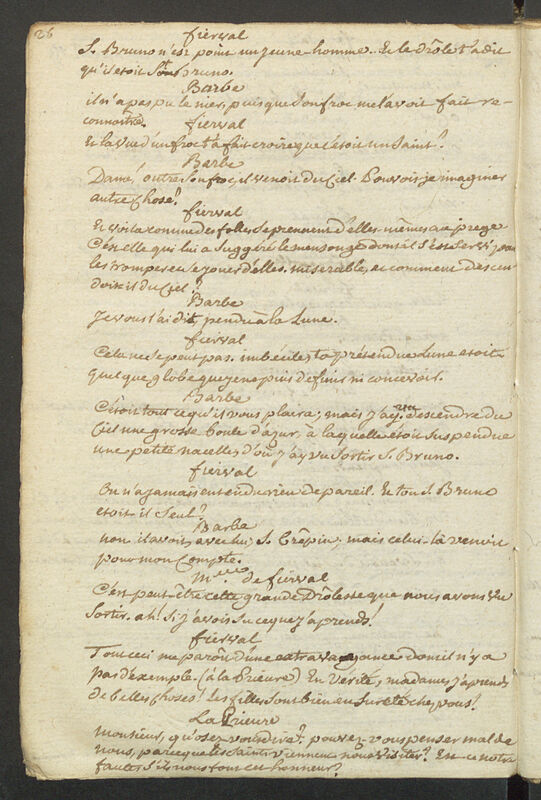 26
fierval
S. Bruno n'est point un jeune-homme. Et le drôle t'a dit
qu'il etoit St bruno.
Barbe
il n'a pas pu le nier, puisque son froc me l'avoit fait re-
connoître.
fierval
Et la vue d'un froc t'a fait croire que c'étoit un Saint?
Barbe
Dame! outre son froc, il venoit du Ciel. Pouvois-je imaginer
autre chose?
fierval
Et voila comme des folles se prennent d'elles mêmes au piege
C'est elle qui lui a suggéré le mensonge dont il s'est servi pour
les tromper et se jouer d'elles. miserable, et comment descen
doit-il du Ciel?
Barbe
Je vous l'ai dit, pendu à la Lune.
fierval
Cela ne se peut pas. imbécile, ta prétendue Lune etoit
quelque globe que je ne puis définir ni concevoir.
Barbe
C'étoit tout ce qu'il vous plaira; mais j'ai vu descendre du
Ciel une grosse boule d'azur, à laquelle étoit suspendue
une petite nacelle d'où j'ay vu sortir S. Bruno.
fierval
On n'a jamais entendu rien de pareil. Et ton S. Bruno
etoit-il seul?
Barbe
non il avoit avec lui S. Crêpin; mais celui-là venoit
pour mon Compte.
Melle de fierval
C'est peut-être cette grande Drôlesse que nous avons vu
sortir. ah! si j'avois su ce que j'aprends!
fierval
Tout ceci me paroît d'une extravagance dont il n'y a
pas d'exemple. (à la Prieure) En verité, madame, j'aprends
de belles choses! les filles sont bien en sureté chez vous!
La Prieure
monsieur, qu'osez vous dire? pouvez-vous penser mal de
nous, parceque les Saints viennent nous visiter? Est-ce notre
faute s'ils nous font cet honneur?